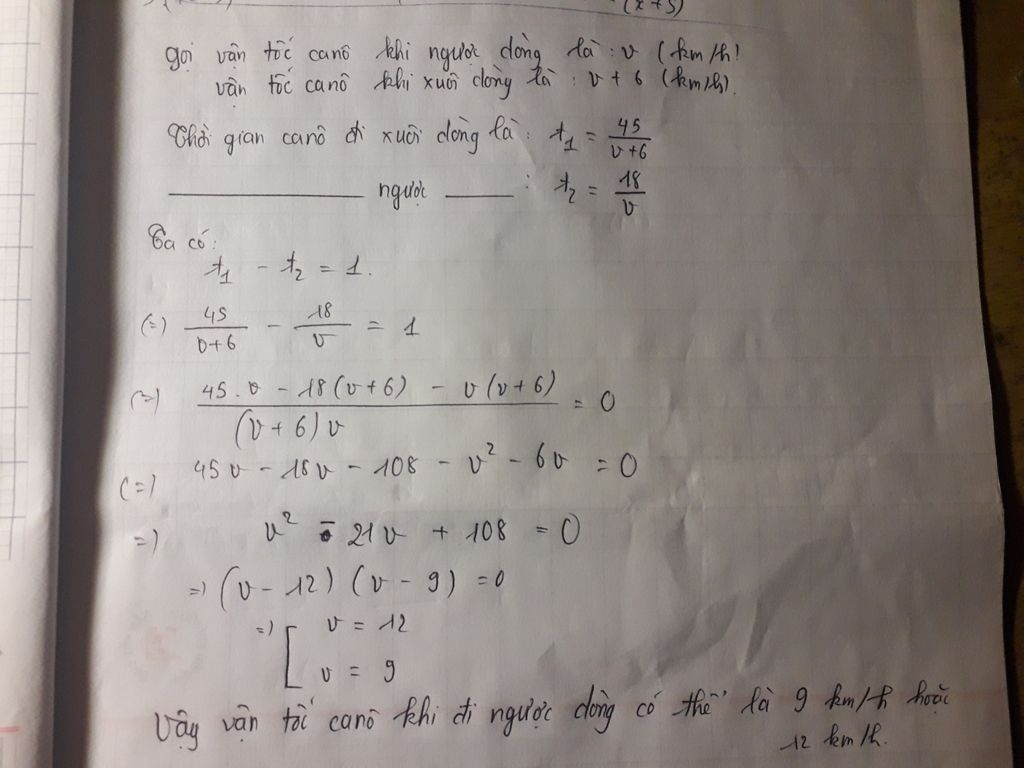 (x+5)
gọi vận tốc canô khi ngược dòng là : v (km/h)
vận tốc canô khi xuôi dòng là : v + 6 (km/h).
Thời gian canô đi xuôi dòng là : t₁ = 45/(v+6)
———— ngược —— : t₂ = 18/v
Ta có :
t₁ - t₂ = 1.
(=) 45/(v+6) - 18/v = 1
(=) (45.v - 18(v+6) - v(v+6))/((v+6)v) = 0
(=) 45v - 18v - 108 - v² - 6v = 0
=) v² - 21v + 108 = 0
=) (v - 12) (v - 9) = 0
=) [ v = 12
v = 9
Vậy vận tốc canô khi đi ngược dòng có thể là 9 km/h hoặc
12 km/h.